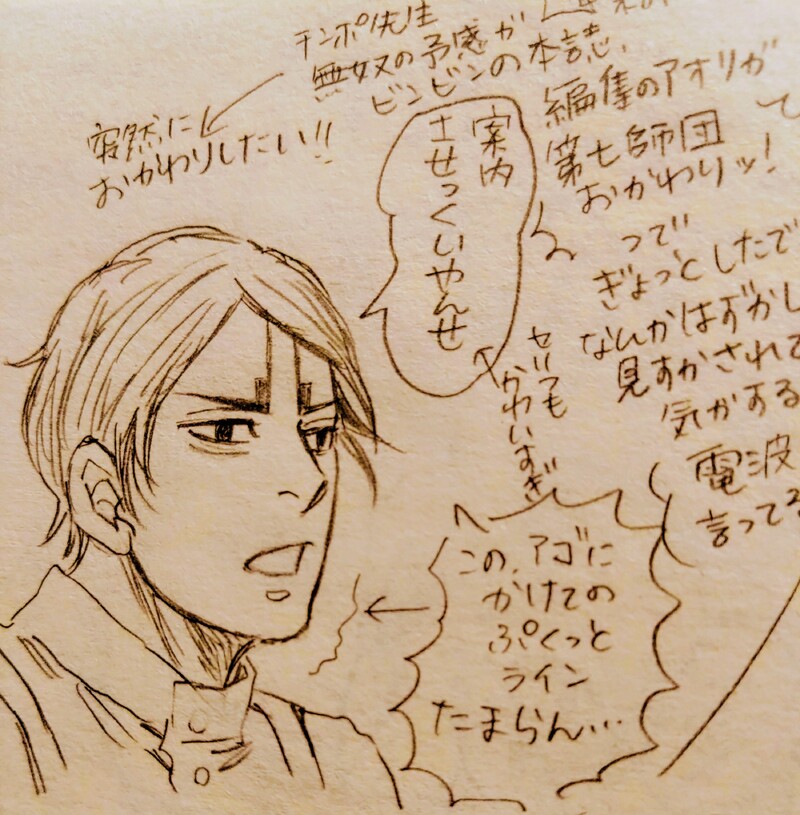 チンポ先生
無奴の予感が
ビンビンの本誌、
編集のアオリが
第七師団
おかわりッ!
って
つで
ぎょっとしたで
なんかはずかし
見すかされて
気がする
電波
言ってる
突然に
おかわりしたい!!
案内
させっくいやんせ
セリフも
かわいすぎ
この、アゴに
かけての
ぷくっと
ライン
たまらん…